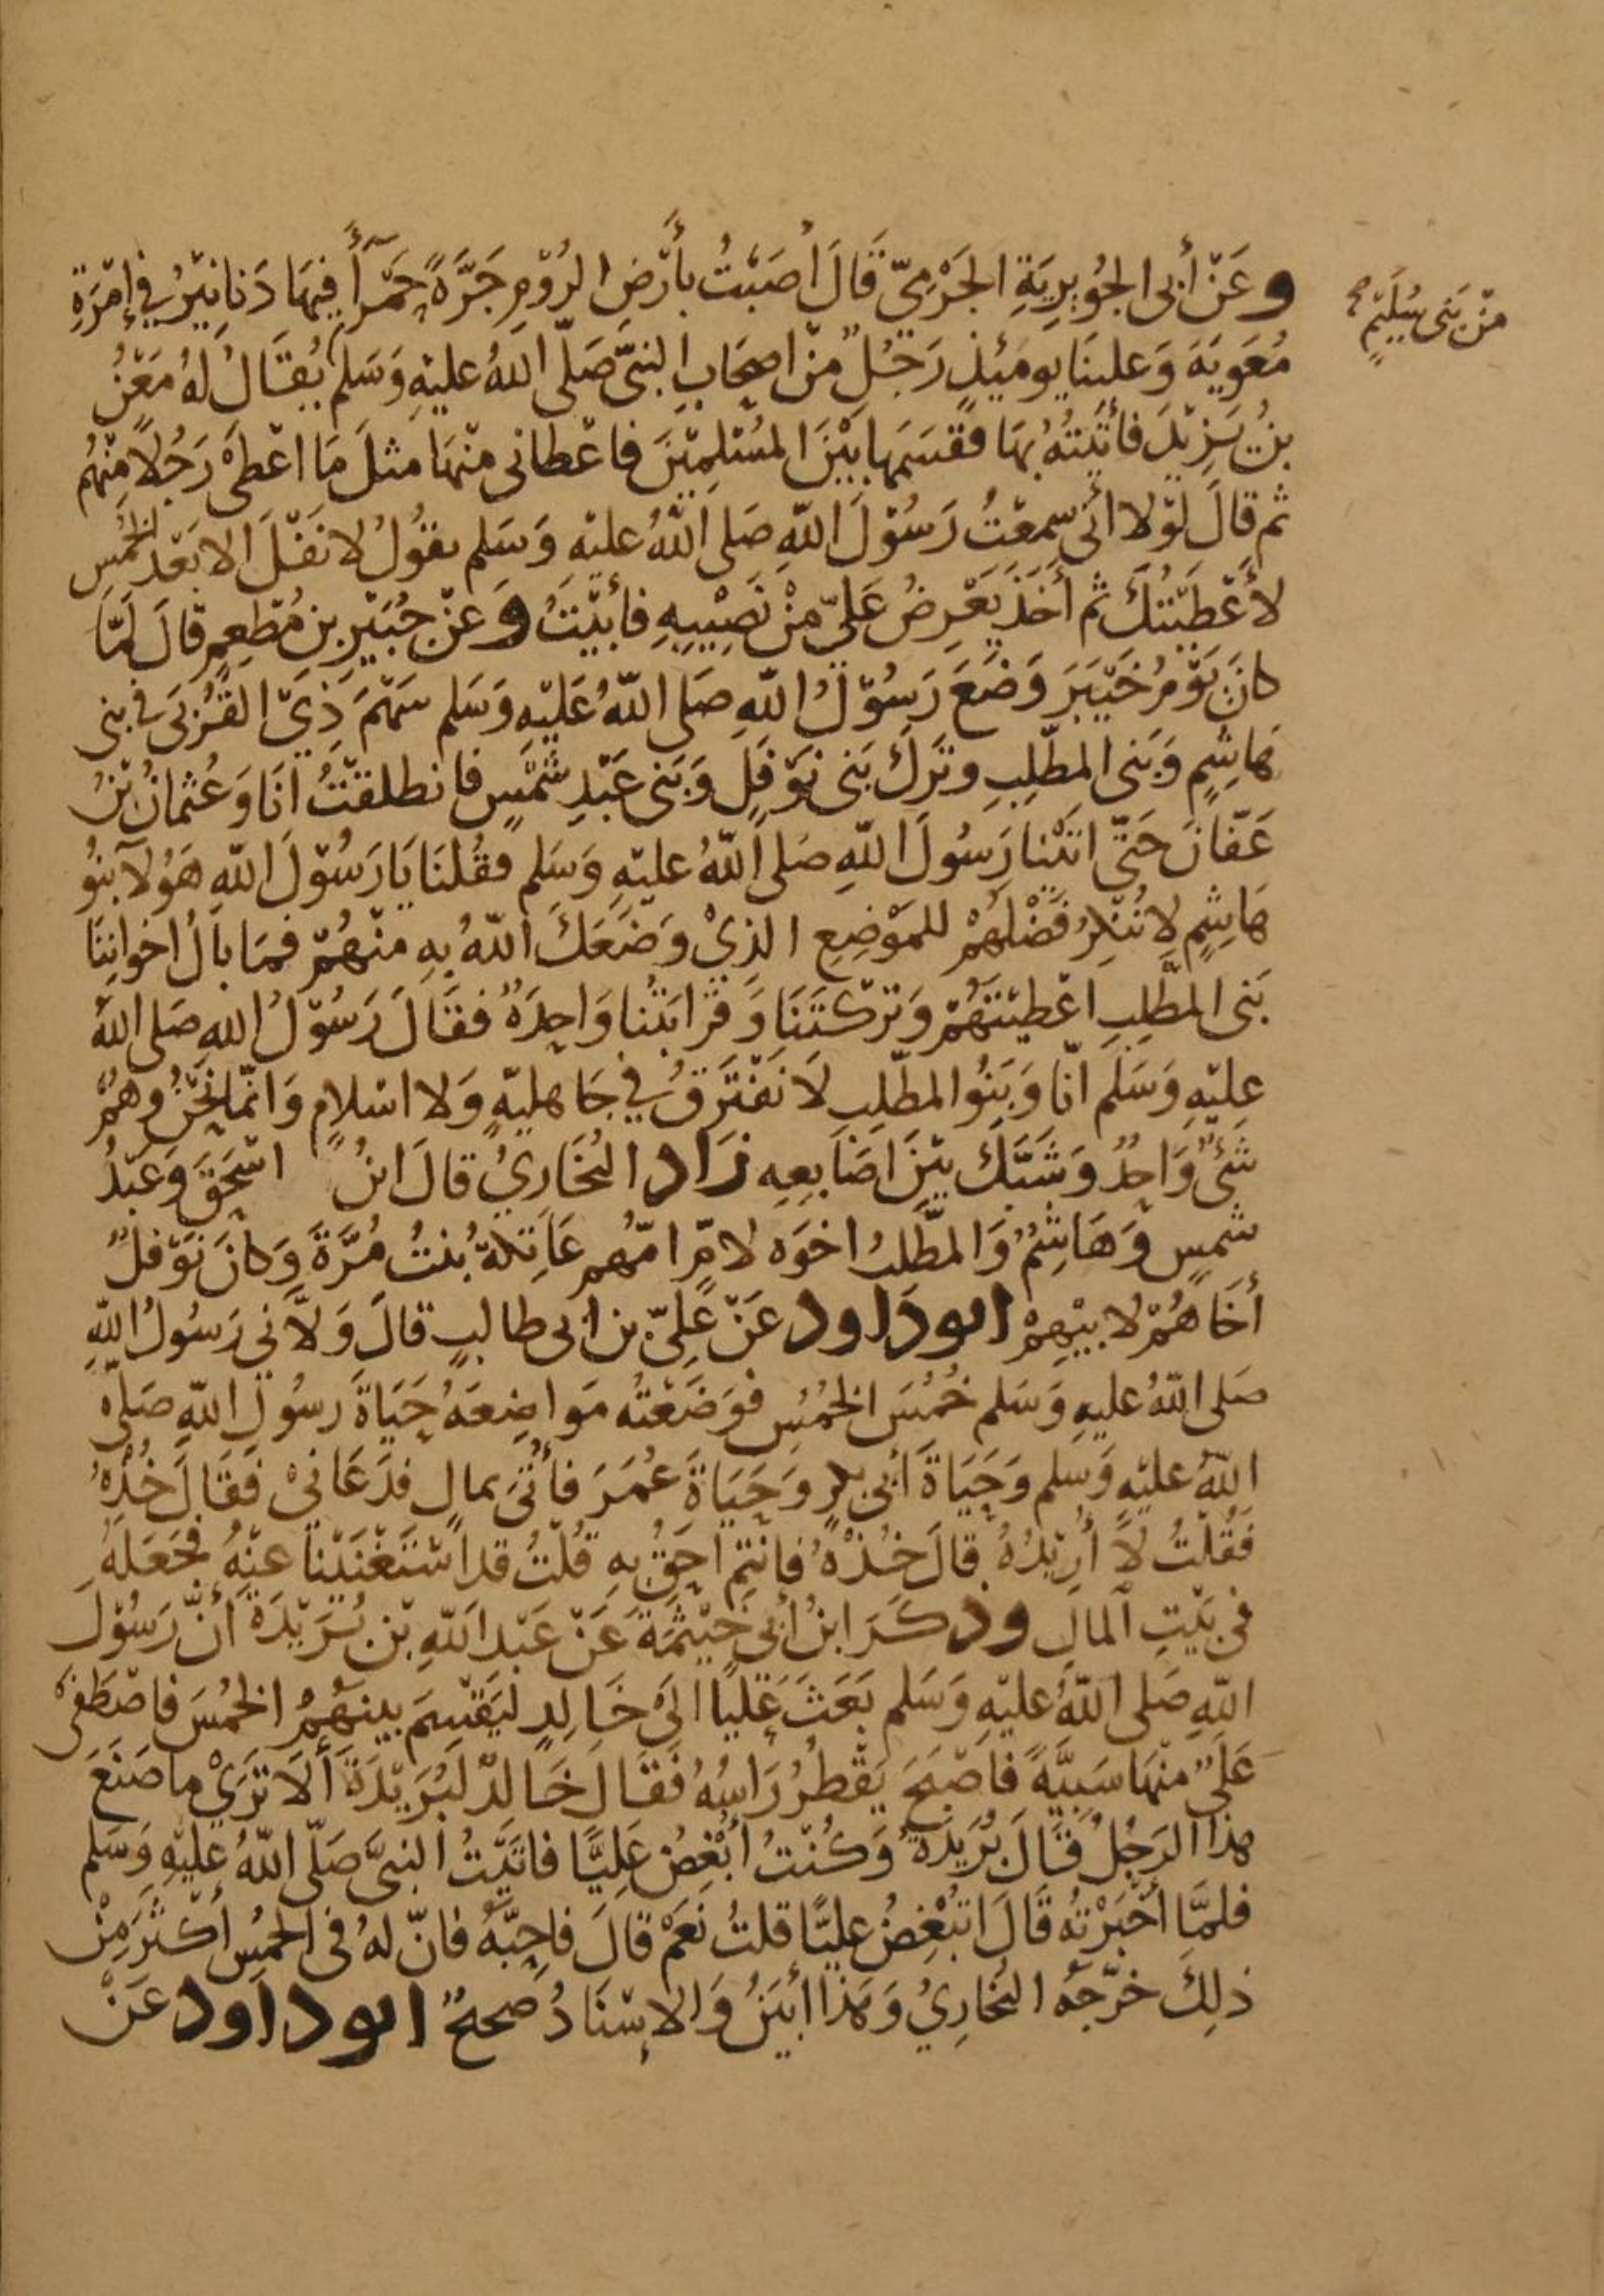 وَعَنْ أَبى الجُوَيرِيَةِ الجَرْمِيّ قَالَ أَصَبْتُ بأَرْضِ الرُوْمِ جَرَّةً حَمْرَآءَ فِيهَا دَنانِيْرُ في إِمْرَةِ
مُعَوِيَةَ وَعلينَا يومَئِذٍ رَجُلٌ مِنْ اصحَابِ النبىّ صَلّى اللهُ عليْهِ وَسَلم يُقَالُ لهُ مَعْنُ
مِنْ بَنى سُلَيْمٍ صح
بنُ يَزِيْدَ فأتَيْتُهُ بهَا فقسَمَها بَيْنَ المُسْلِمِيْنَ فاعْطانى منْهَا مثلَ مَا اعْطَى رَجُلاً مِنْهُم
ثم قالَ لوْلا انّى سَمِعْتُ رَسُوْلَ اللهِ صَلى اللهُ عليْهِ وَسَلم يقوُلُ لا نَفْلَ الا بَعْدَ الخُمُسِ
لأَعْطَيْتُكَ ثم أَخَذَ يَعْرِضُ عَلىّ مِنْ نَصِيْبِهِ فأبَيْتُ وَعنْ جُبَيْرِ بنِ مُطْعِمٍ قالَ لمّا
كانَ يَوْمُ خَيْبَرَ وَضَعَ رَسُوْلُ اللهِ صَلى اللهُ عَليْهِ وَسَلم سَهْمَ ذِيْ القُرْبَى في بنى
هَاشِمٍ وَبَنى المطّلِبِ وتَرَكَ بَنى نَوْفَلٍ وَبَنى عَبْدِ شَمْسٍ فانطلقْتُ انَا وَعُثمانُ بْنُ
عَفّانَ حَتّى اتَيْنا رَسُولَ اللهِ صَلى اللهُ عليْهِ وَسَلم فقُلنَا يَا رَسُوْلَ اللهِ هَؤُلآ بنُو
هَاشِمٍ لا نُنْكِرُ فَضْلَهُمْ للمَوْضِعِ الذِيْ وَضَعَكَ اللهُ بهِ منْهُمْ فمَا بالُ اخوانِنَا
بَنى المطّلِبِ اعْطيْتَهُمْ وَتَرَكتَنَا وَقرَابَتُنا وَاحِدَةٌ فقَالَ رَسُوْلُ اللهِ صَلى اللهُ
عليْهِ وَسَلَم انّا وَبَنُوا المطّلِبِ لَا نَفْتَرَقُ في جَاهليّةٍ وَلا اسْلامٍ وَانّمَا نَحْنُ وهُمْ
شَئٌ وَاحِدٌ وَشَبّكَ بَيْنَ اصَابعِهِ زَاد البُخَارِيُ قالَ ابنُ اسْحَقَ وَعَبْدُ
شمسٍ وَهَاشِمٌ وَالمطّلبُ اخوَه لامٍّ امّهُم عَاتِكةُ بُنتُ مُرَّةَ وَكانَ نَوْفلٌ
أخَاهُمْ لابيْهِمْ ابو دَاود عَنْ عَليّ بن ابى طالبٍ قالَ وَلاَّني رَسُولُ اللهِ
صَلى اللهُ عليهِ وَسَلم خُمُسَ الخُمُسِ فوَضَعْتُه مَواضِعَهُ حَيَاةَ رسُولِ اللهِ صَلى
اللهُ عليْهِ وَسَلم وَحَيَاةَ أبى بكرٍ وَحَيَاةَ عُمَرَ فأُتىَ بمالٍ فدَعَانىْ فَقَالَ خُذْهُ
فَقُلْتُ لَا أُرِيْدُهُ قالَ خُذْهُ فانتم احَقُ بهِ قُلْتُ قد اسْتَغْنَيْنا عنْهُ فجَعَلهُ
في بَيْتِ المالِ وذكَرَ ابنُ أبى خَيْثَمَةَ عَنْ عَبْد اللهِ بْنِ بُرَيْدَةَ أنَّ رَسُوْلَ
اللهِ صَلى اللهُ عليْهِ وَسَلم بَعَثَ عَليًا الىَ خَالدٍ ليَقْسِمَ بينهُمُ الخمُسَ فاصْطَفى
عَلىٌ منْهَا سَبِيَّةً فاصْبَحَ يَقْطرُ رَاسُهُ فقَالَ خَالدٌ لبُرَيْدَةَ ألَا تَرَيْ ما صَنَعَ
هذا الرَجُلُ قَالَ بُرَيْدَةُ وَكُنْتُ أُبْغِضُ عَليًّا فاتَيْتُ النبىَّ صَلّى اللهُ عليْهِ وَسَلم
فلمَّا أخبَرْتُه قَالَ اتبْغِضُ عليًّا قلتُ نَعَمْ قالَ فاحِبَّهُ فانّ لهُ فى الخمُسِ أكْثَرَ مِنْ
ذلِكَ خرّجَهُ البُخَارِيُ وَهَذا أبْيَنُ وَالاسْنَادُ صَحيحٌ ابو دَاود عَنْ